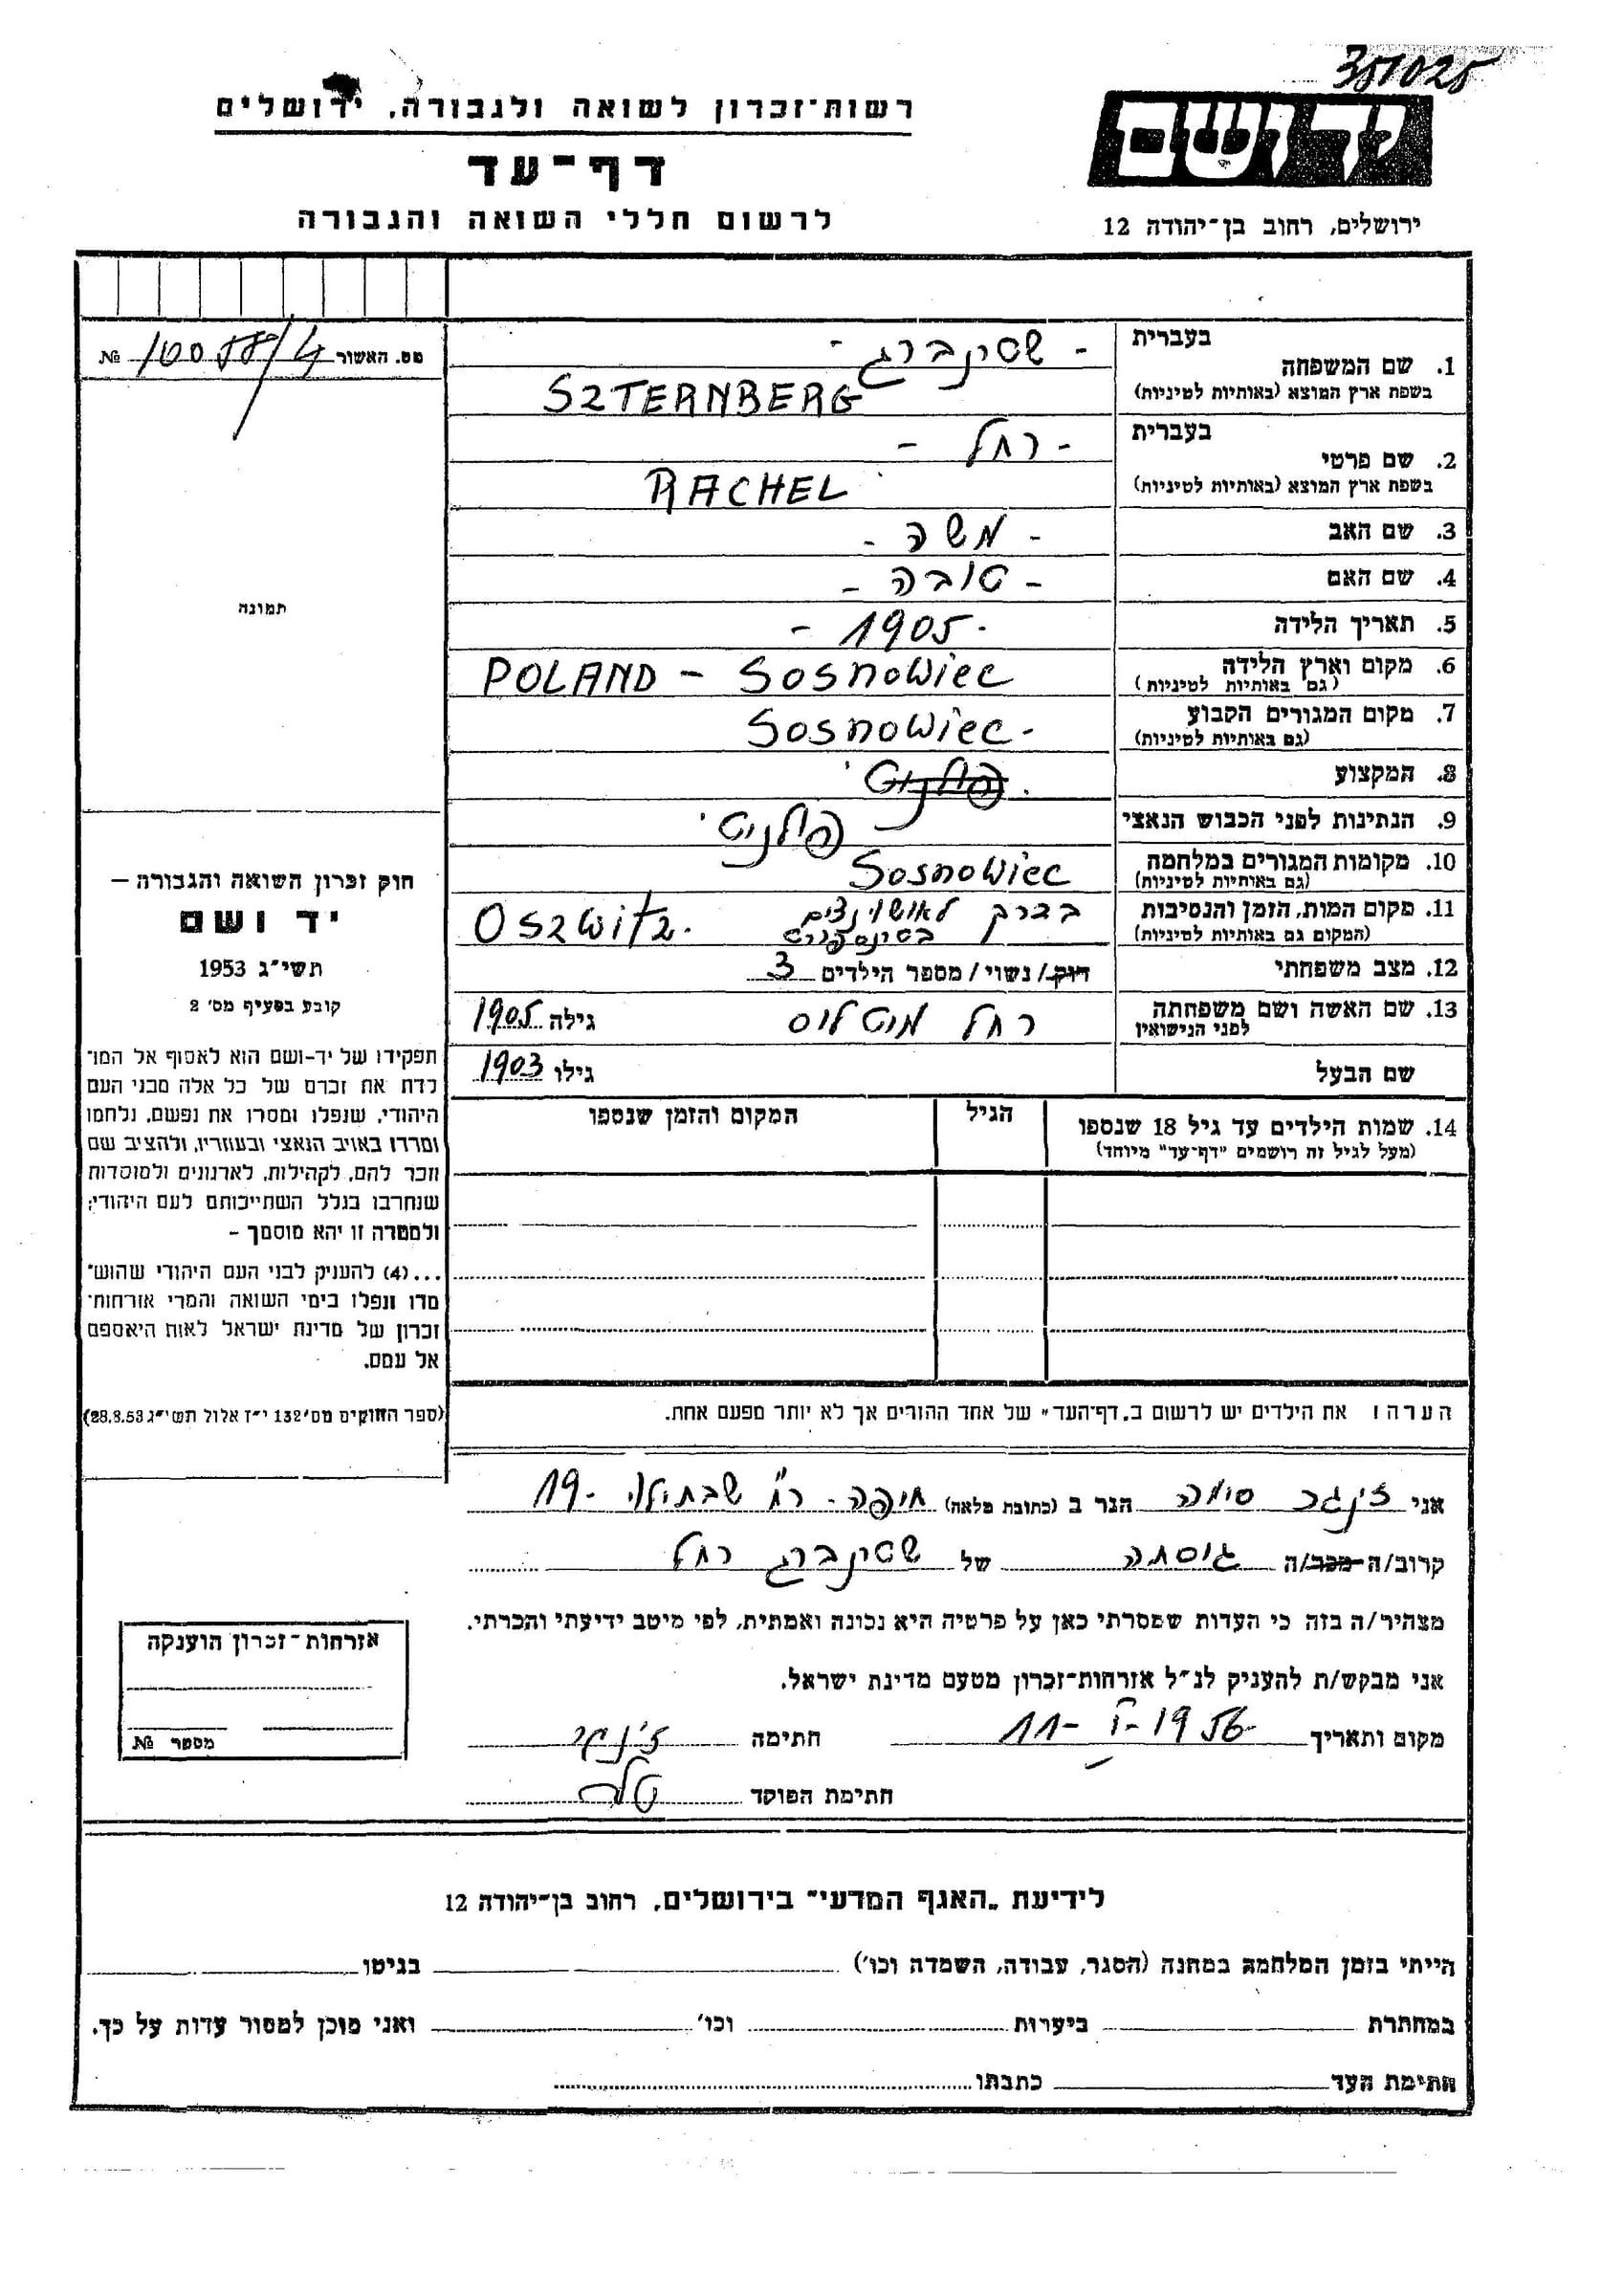 351025
רשות־זכרון לשואה ולגבורה, ירושלים
יד ושם
דף־עד
לרשום חללי השואה והגבורה
ירושלים, רחוב בן־יהודה 12
מס. האשור № 10058/4
בעברית
1. שם המשפחה
בשפת ארץ המוצא (באותיות לטיניות)
- שטרנברג -
SZTERNBERG
בעברית
2. שם פרטי
בשפת ארץ המוצא (באותיות לטיניות)
- רחל -
RACHEL
3. שם האב - משה -
4. שם האם - טובה -
5. תאריך הלידה - 1905 -
6. מקום וארץ הלידה
(גם באותיות לטיניות)
POLAND - SOSNOWIEC
7. מקום המגורים הקבוע
(גם באותיות לטיניות)
SOSNOWIEC -
8. המקצוע
9. הנתינות לפני הכבוש הנאצי פולנית
10. מקומות המגורים במלחמה
(גם באותיות לטיניות)
SOSNOWIEC
11. מקום המות, הזמן והנסיבות
(המקום גם באותיות לטיניות)
בדרך לאושוינצים
בטרנספורט
OSZWITZ.
12. מצב משפחתי רוק/נשוי/מספר הילדים 3
13. שם האשה ושם משפחתה
לפני הנישואין
רחל גילה 1905
שם הבעל גילו 1903
14. שמות הילדים עד גיל 18 שנספו
(מעל לגיל זה רושמים "דף־עד" מיוחד)
הגיל
המקום והזמן שנספו
הערה: את הילדים יש לרשום ב„דף־העד" של אחד ההורים אך לא יותר מפעם אחת.
תמונה
חוק זכרון השואה והגבורה —
יד ושם
תשי"ג 1953
קובע בסעיף מס' 2
תפקידו של יד-ושם הוא לאסוף אל המו־
לדת את זכרם של כל אלה מבני העם
היהודי, שנפלו ומסרו את נפשם, נלחמו
ומרדו באויב הנאצי ובעוזריו, ולהציב שם
וזכר להם, לקהילות, לארגונים ולמוסדות
שנחרבו בגלל השתייכותם לעם היהודי;
ולמטרה זו יהא מוסמך –
...(4) להעניק לבני העם היהודי שהוש־
מדו ונפלו בימי השואה והמרי אזרחות־
זכרון של מדינת ישראל לאות היאספם
אל עמם.
(ספר החוקים מס' 132 י"ז אלול תשי"ג 28.8.53)
אני זינגר הגר ב (כתובת מלאה) חיפה - רח' שבתאי לוי 19-
קרוב/ה מכר/ה גיסתה של שטרנברג רחל
מצהיר/ה בזה כי העדות שמסרתי כאן על פרטיה היא נכונה ואמתית, לפי מיטב ידיעתי והכרתי.
אני מבקש/ת להעניק לנ"ל אזרחות־זכרון מטעם מדינת ישראל.
מקום ותאריך 11-I-1956 חתימה
חתימת הפוקד
אזרחות־זכרון הוענקה
מספר №
לידיעת „האגף המדעי" בירושלים, רחוב בן־יהודה 12
הייתי בזמן המלחמה במחנה (הסגר, עבודה, השמדה וכו') בגיטו
במחתרת ביערות וכו' ואני מוכן למסור עדות על כך.
חתימת העד כתבתו